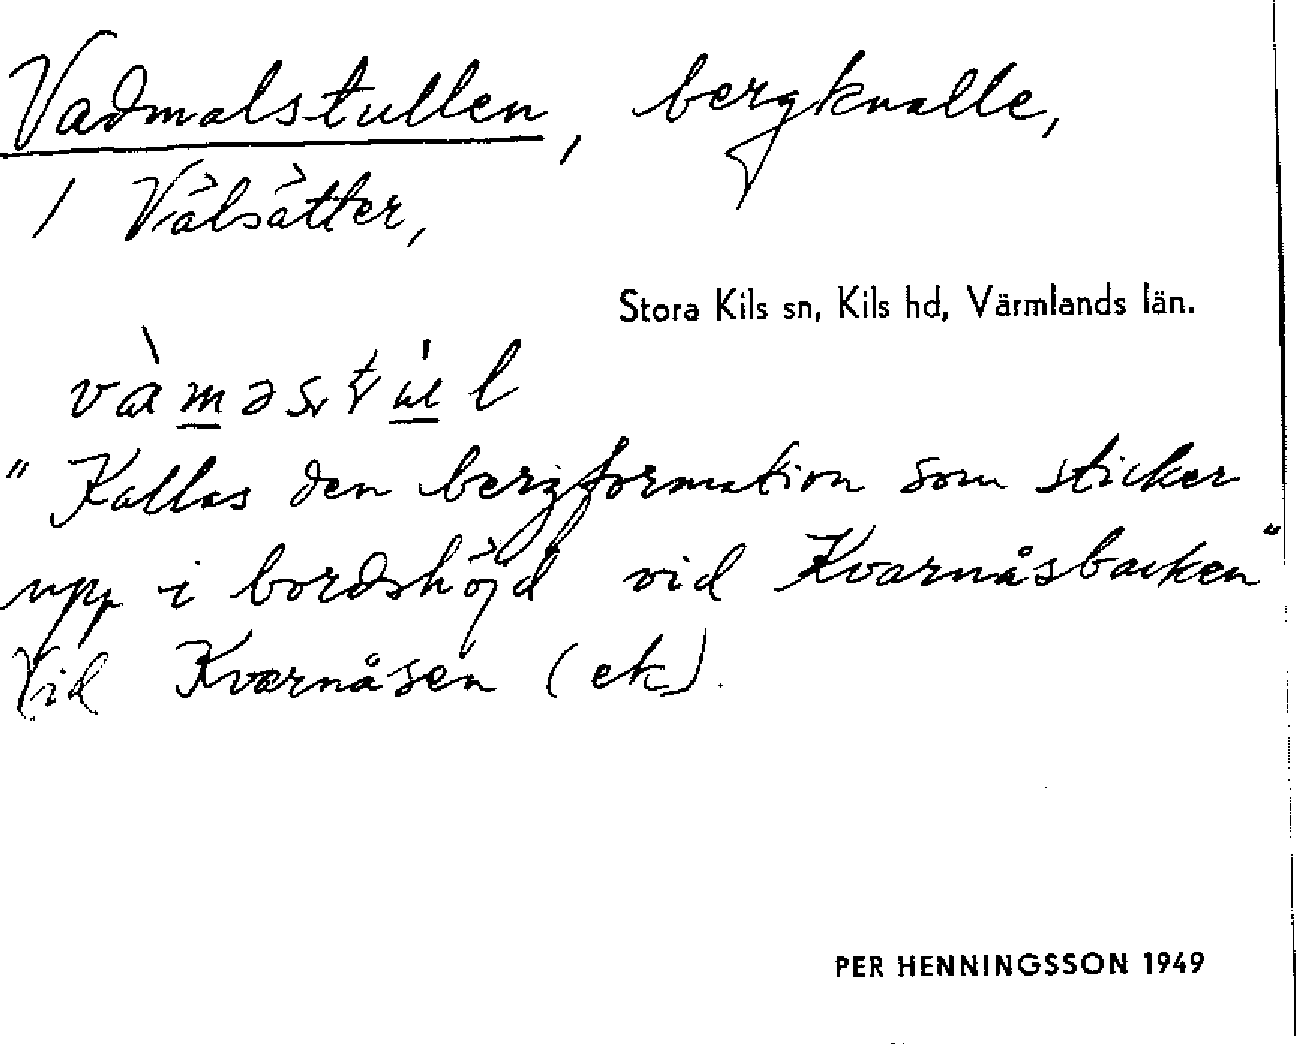 Vadmalstullen, bergknalle,
/ Välsätter,
Stora Kils sn, Kils hd, Värmlands län.
"Kallas den bergformation som sticker
upp i bordshöjd vid Kvarnåsbacken"
Vid Kvarnåsen (ek).
PER HENNINGSSON 1949